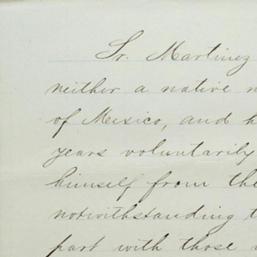 Sr. Martinez
neither a native
of Mexico, and
years voluntarily
himself from the
notwithstanding
part with those